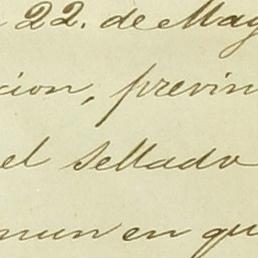 22. de May
cion, previn
el Sellado
mun en qu